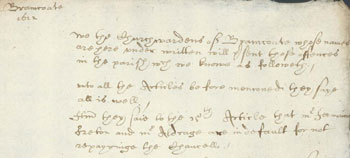 Bramcote
1612
We the Churchwardens of Bramcote whose names
are here under written will p'sent those offences
in the parish wch are knowne as followeth,
Into all the Articles before mencioned they saye
all is well,
And they saie to the 10th Article that mr
and mr Aldridge are in default for not
repayringe the Chancell,